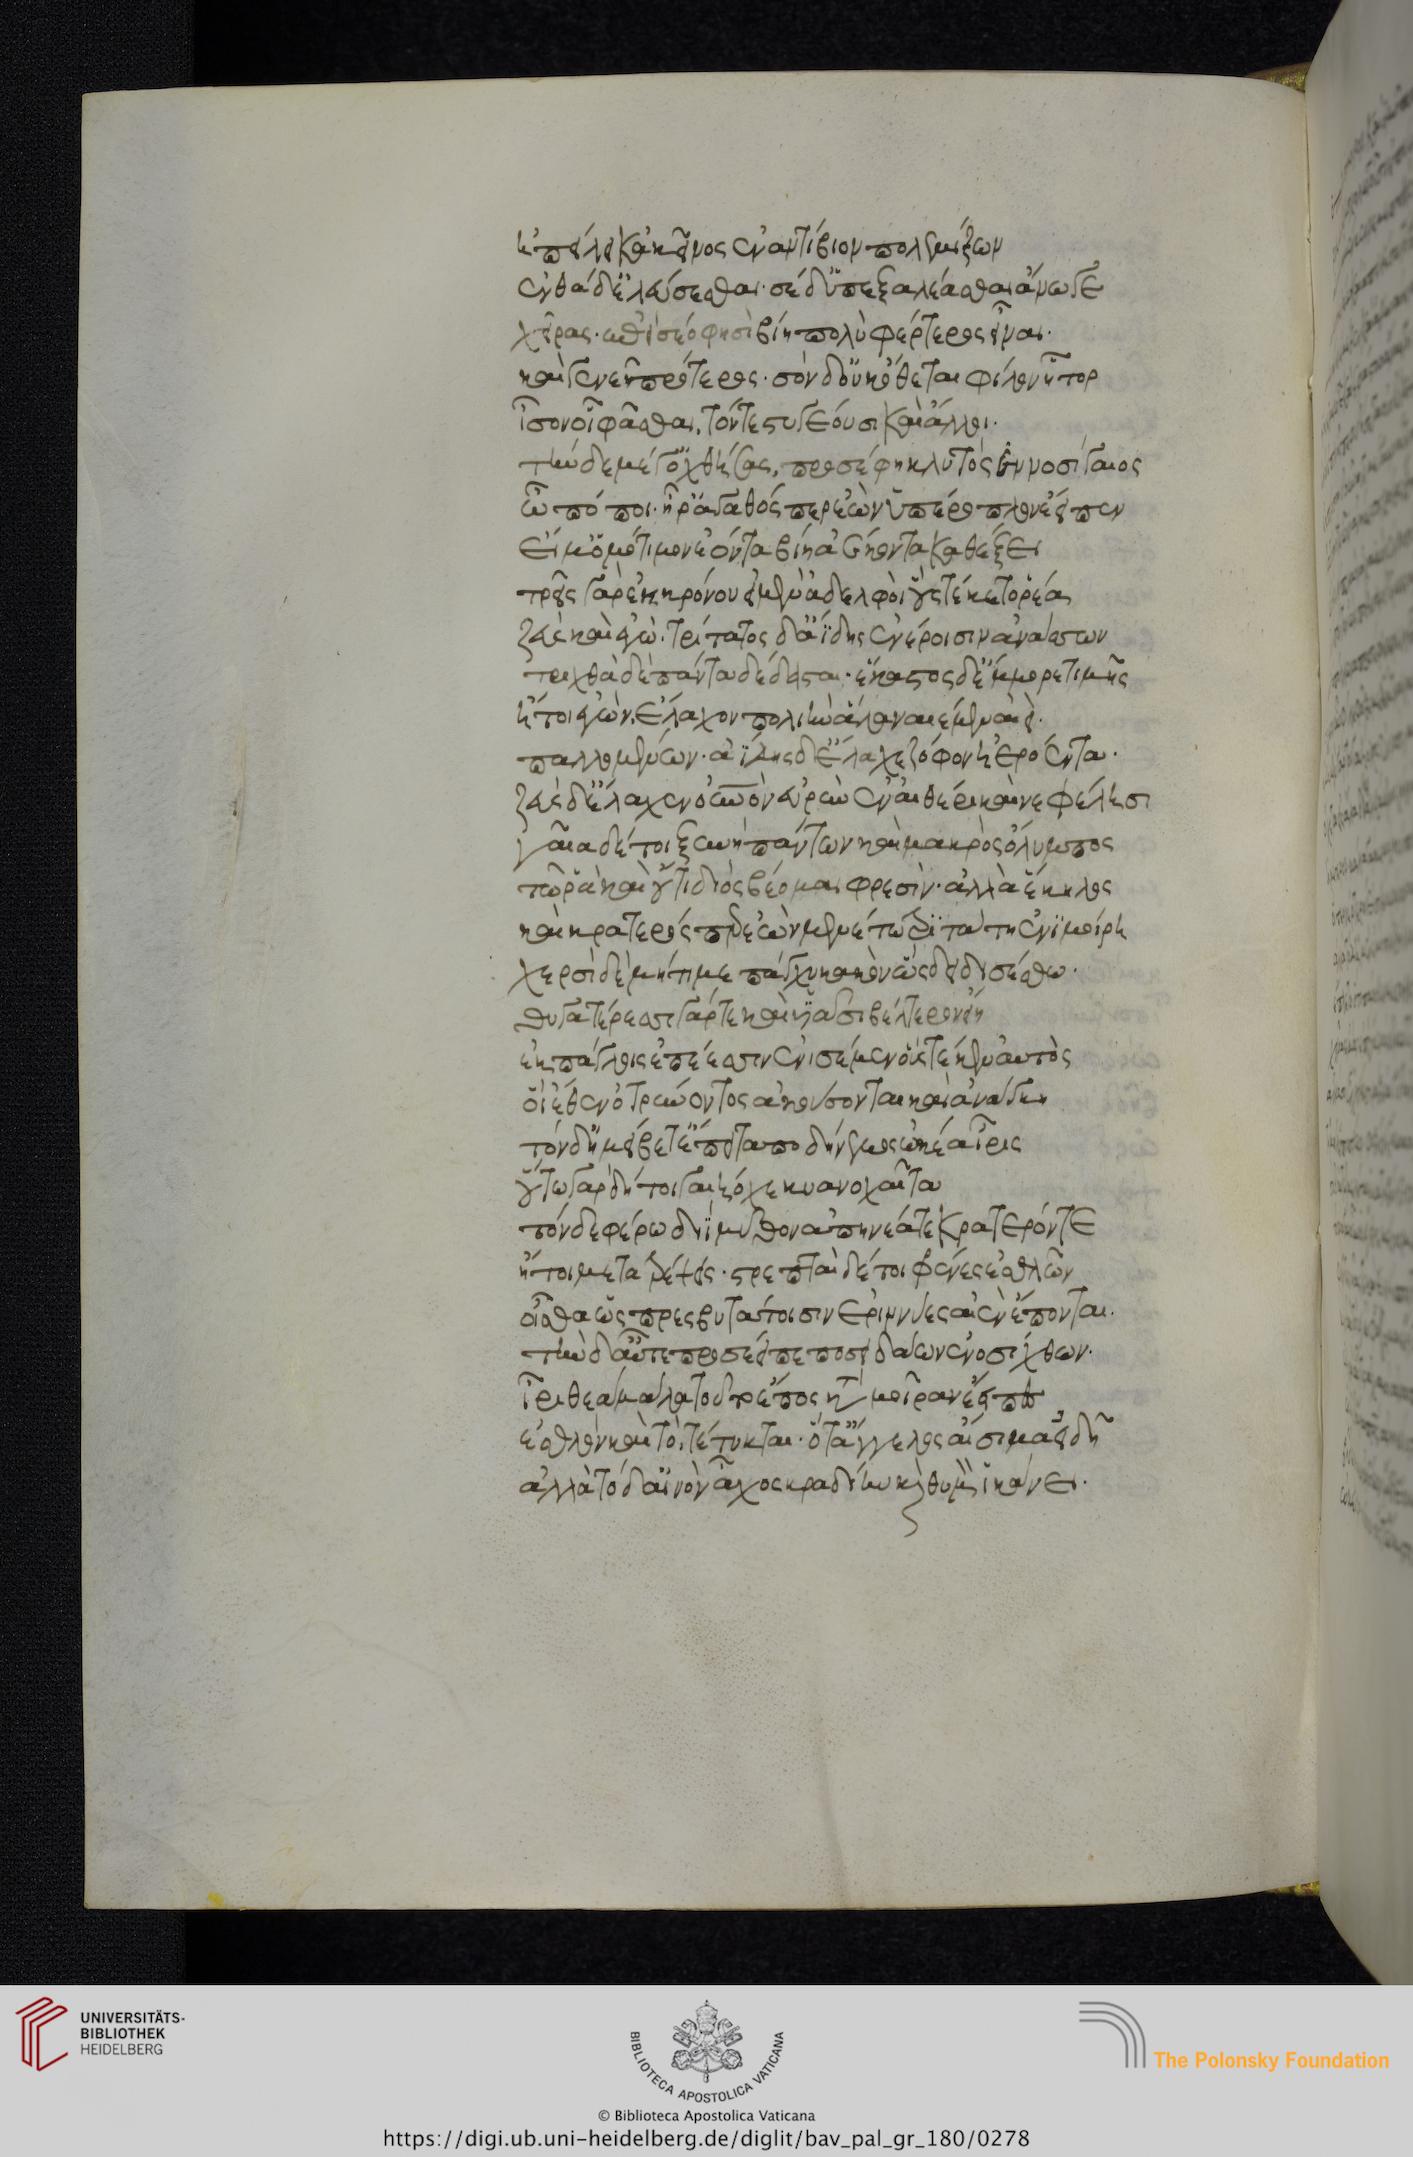 ἠπείλει κἀκεῖνος ἐναντίβιον πολεμίξων
ἐνθάδ' ἐλεύσεσθαι· σὲ δ' ὑπεξαλέασθαι ἄνωγε
χεῖρας· ἐπεὶ σέο φησὶ βίη πολὺ φέρτερος εἶναι·
καὶ γενεῆ πρότερος· σὸν δ' οὐκ ὄθεται φίλον ἦτορ
ἶσον οἷ φᾶσθαι, τόντε στυγέουσι καὶ ἄλλοι·
τὴν δὲ μέγ' ὀχθήσας, προσέφη κλυτὸς ἐννοσίγαιος
ὦ πόποι· ἦ ῥ' ἀγαθός περ ἐὼν ὑπέροπλον ἔειπεν
εἴ μ' ὁμότιμον ἐόντα βίη ἀέκοντα καθέξει
τρεῖς γὰρ ἐκ κρόνου εἰμὲν ἀδελφοὶ οὓς τέκετο ῥέα
ζεὺς καὶ ἐγώ· τρίτατος δ' ἀΐδης ἐνέροισιν ἀνάσσων
τριχθὰ δὲ πάντα δέδασται· ἕκαστος δ' ἔμμορε τιμῆς
ἤτοι ἐγὼν ἔλαχον πολιὴν ἅλα ναιέμεν αἰεί·
παλλομένων· ἀΐδης δ' ἔλαχε ζόφον ἠερόεντα·
ζεὺς δ' ἔλαχεν οὐρανὸν εὐρὺν ἐν αἰθέρι καὶ νεφέλησι
γαῖα δέ τοι ξυνὴ πάντων καὶ μακρὸς ὄλυμπος
τῶ ῥα καὶ οὔτι διὸς βέομαι φρεσίν· ἀλλὰ ἕκηλος
καὶ κρατερός περ ἐὼν μενέτω τριτάτη ἐνὶ μοίρη
χερσὶ δὲ μήτι με πάγχυ κακὸν ὣς δειδισέσθω·
θυγατέρεσσι γάρ τε καὶ υἱάσι βέλτερον εἴη
ἐκπάγλοις ἐπέεσσιν ἐνισέμεν οὕς τέκεν αὐτὸς
οἵ ἕθεν ὀτρύνοντος ἀκούσονται καὶ ἀνάγκη
τὸν δ' ἠμείβετ' ἔπειτα ποδήνεμος ὠκέα ἶρις
οὕτω γὰρ δή τοι γαιήοχε κυανοχαῖτα
τόνδε φέρω διῒ μῦθον ἀπηνέα τε κρατερόν τε
ἤ τοι μεταστρέψεις· στρεπταὶ δέ τοι φρένες ἐσθλῶν
οἶσθα ὡς πρεσβυτάτοισιν ἐριννύες αἰὲν ἕπονται·
τὴν δ' αὖτε προσέειπε ποσειδάων ἐνοσίχθων·
ἶρι θεὰ μάλα τοῦτο ἔπος κατὰ μοῖραν ἔειπες
ἐσθλὸν καὶ τὸ τέτυκται· ὅτ' ἄγγελος αἴσιμα εἰδῆ
ἀλλὰ τόδ' αἰνὸν ἄχος κραδίην καὶ θυμὸν ἱκάνει·
UNIVERSITÄTS-
BIBLIOTHEK
HEIDELBERG
BIBLIOTECA APOSTOLICA VATICANA
The Polonsky Foundation
© Biblioteca Apostolica Vaticana
https://digi.ub.uni-heidelberg.de/diglit/bav_pal_gr_180/0278